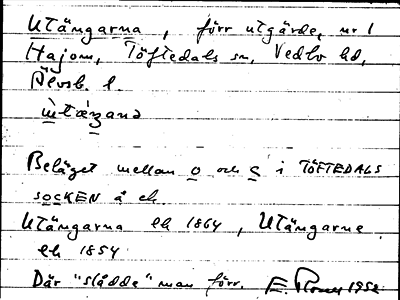 Utängarna, förr utgärde, nr 1
Hajom, Töftedals sn, Vedbo hd,
Älvsb. l.
Beläget mellan o och c i TÖFTEDALS
SOCKEN å ek.
Utängarna ek 1864, Utängarne
ek 1854
Där "slådde" man förr. E. 1952